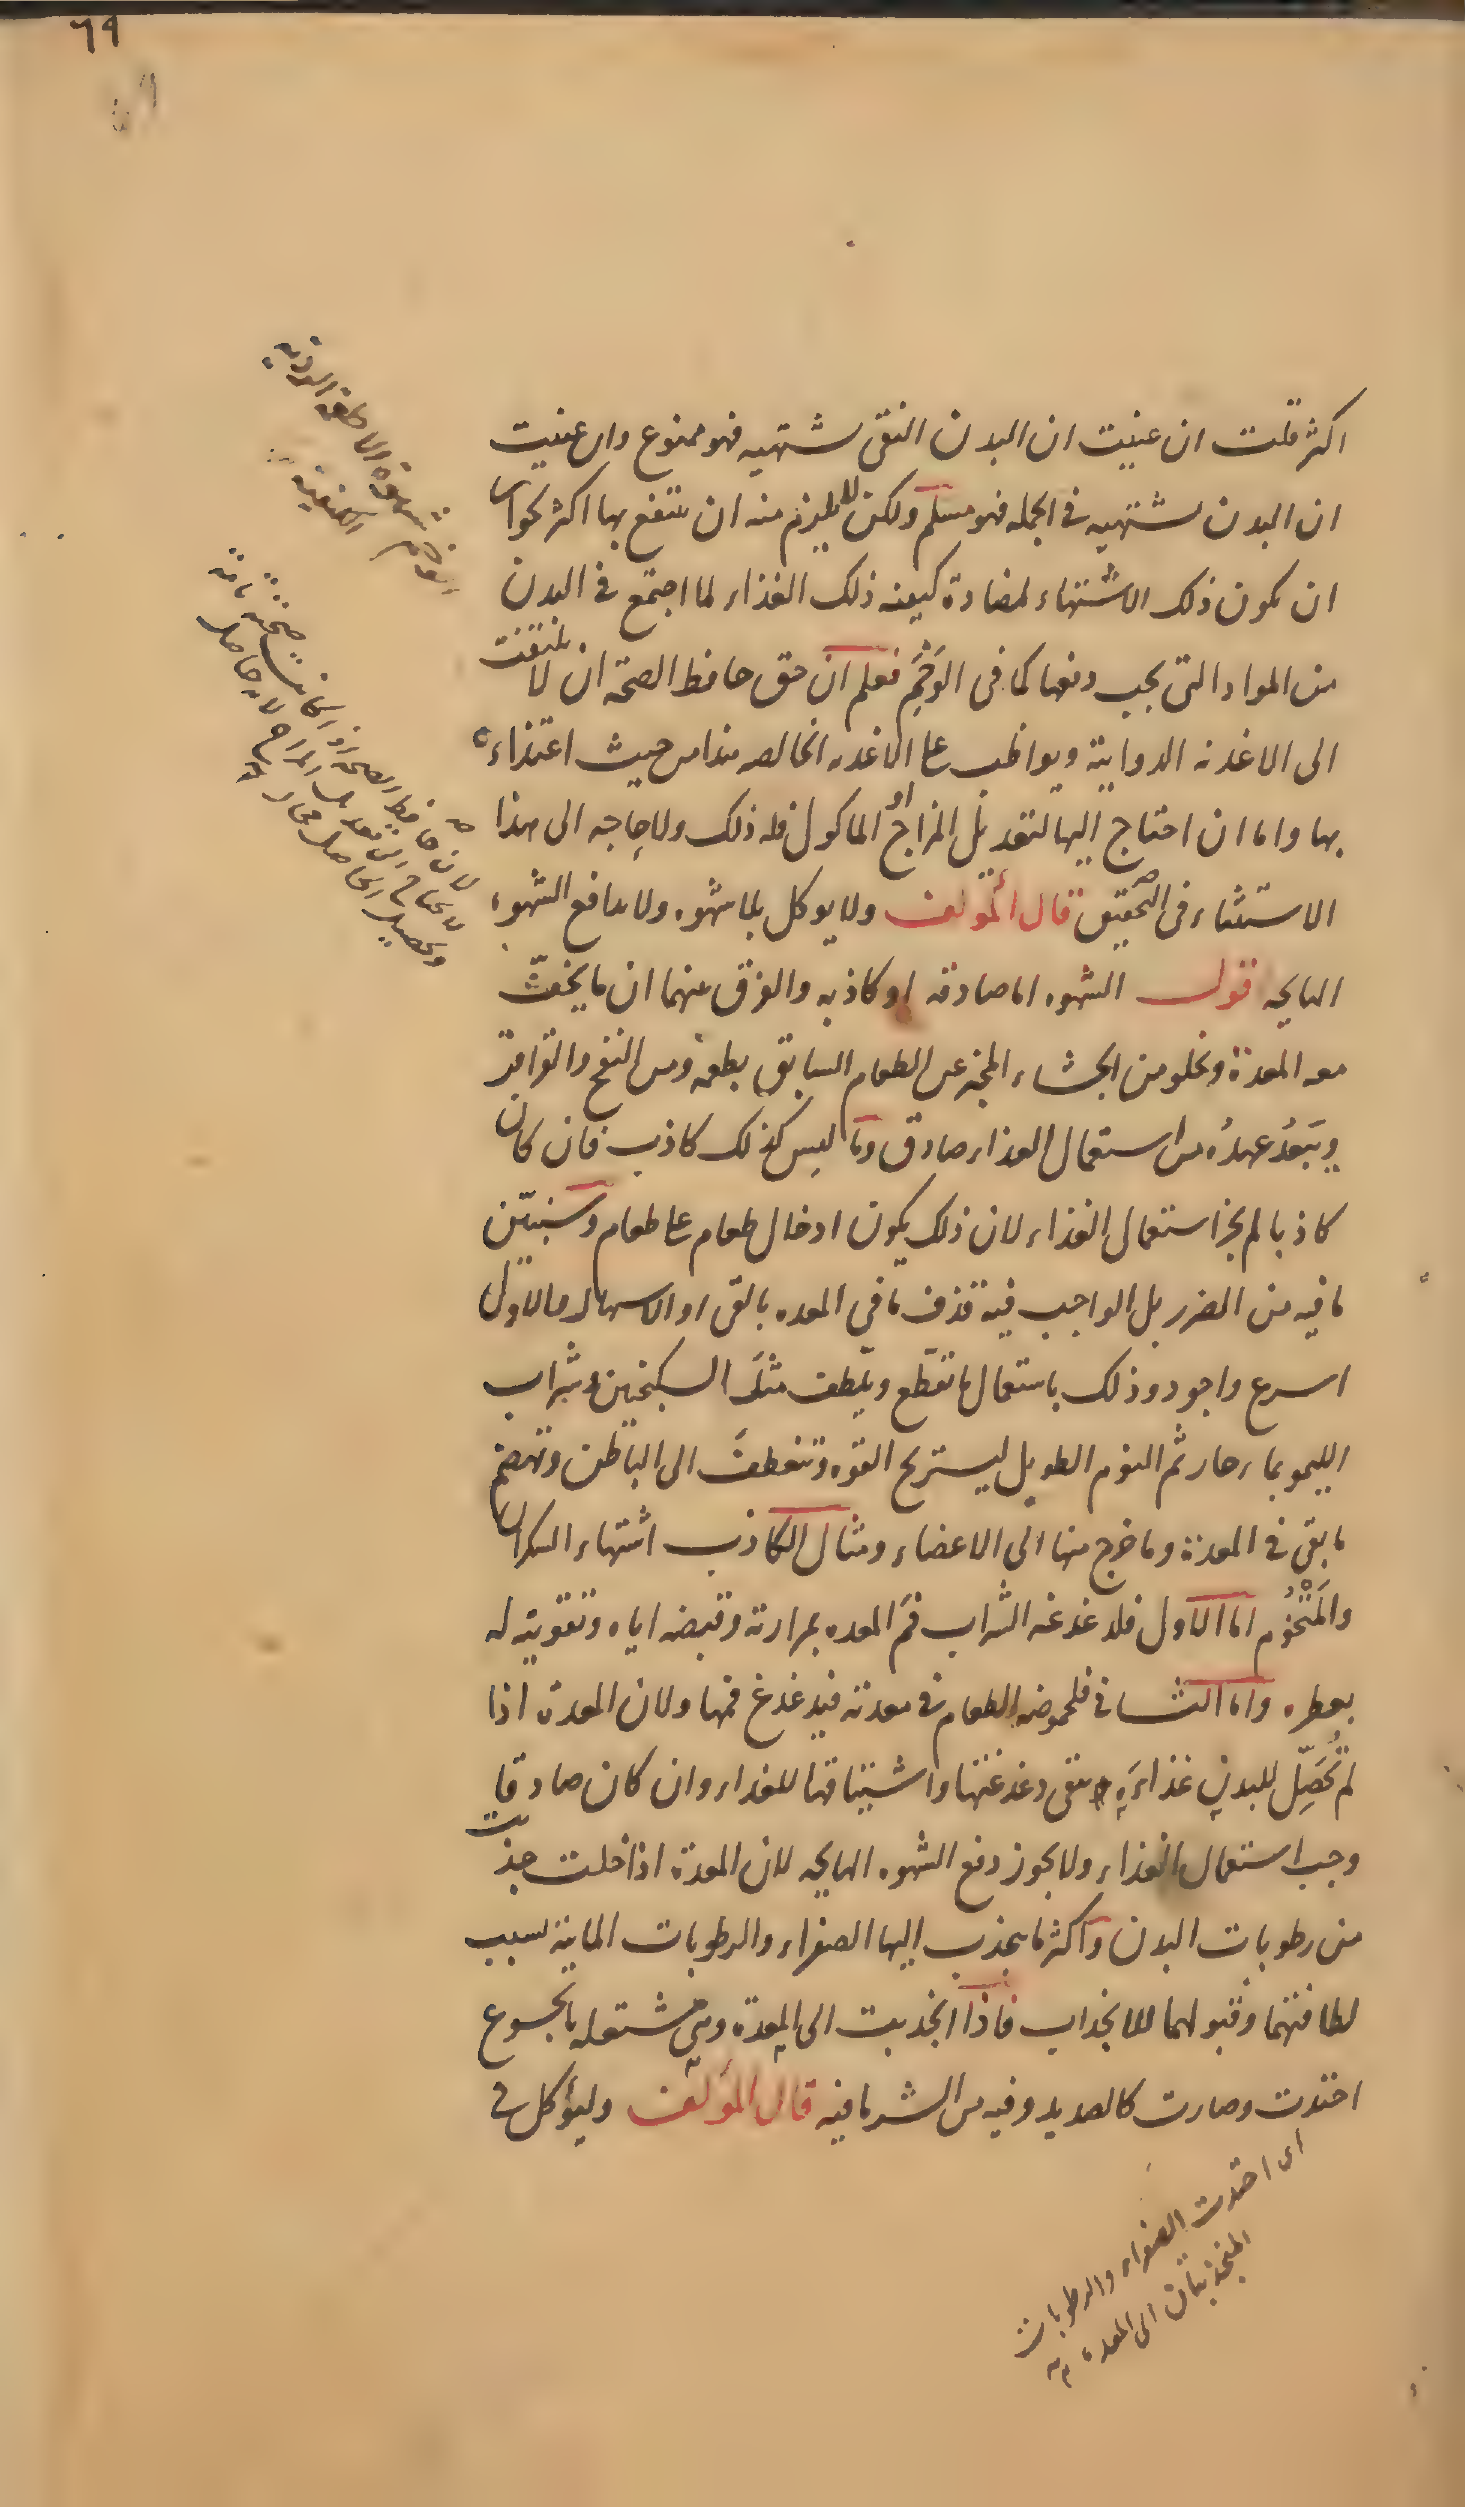 ٦٩
اكثر قلت ان عنيت ان البدن النقى يشتهيه فهو ممنوع وان عنيت
ان البدن يشتهيه فى الجمله فهو مسلم ولكن لا يلزم منه ان ينتفع بها اكثر لجواز
ان يكون ذلك الاشتهاء لمضادة كيفيه ذلك الغذاء لما اجتمع فى البدن
من المواد التى يجب دفعها كما فى الوَحَم فعلم ان حق حافظ الصحة ان لا يلتفت
الى الاغذية الدوايية ويواظب على الاغذيه الخالصه هذا من حيث اغتذاءه
بها واما ان احتاج اليها لتعديل المزاج او الماكول فله ذلك ولا حاجه الى هذا
الاستثناء فى التحقيق قال المؤلف ولا يوكل بلا شهوه ولا يدافع الشهوه
الهايجه اقول الشهوه اما صادقه او كاذبه والفرق بينهما ان ما يخفّ
معه المعدة ويخلو من الجشاء المخبر عن الطعام السابق بطعمه ومن النفخ والقراقر
ويَبعُد عهدُه من استعمال الغذاء صادق وما ليس كذلك كاذب فان كان
كاذبا لم يجز استعمال الغذاء لان ذلك يكون ادخال طعام على طعام وسنبيّن
ما فيه من الضرر بل الواجب فيه قذف ما فى المعده بالقى او الاسهال والاول
اسرع واجود وذلك باستعمال ما يقطّع ويلطف مثل السكنجبين وشراب
الليمو بماء حار ثم النوم الطويل ليستريح القوه وتنعطف الى الباطن وتهضم
ما بقى فى المعدة وما خرج منها الى الاعضاء ومثال الكاذب اشتهاء السكران
والمَتْخُوم اما الاول فلدغدغه الشراب فمَ المعده بمرارته وقبضه اياه وتقويته له
بعطره واما الثانى فلحموضه الطعام فى معدته فيدغدغ فمها ولان المعدة اذا
لم تُحَصِّل للبدن غذاءَه يبقى دغدغتها واشتياقها للغذاء وان كان صادقا
وجب استعمال الغذاء ولا يجوز دفع الشهوه الهايجه لان المعدة اذا خلت جذبت
من رطوبات البدن واكثر ما ينجذب اليها الصفراء والرطوبات المايية بسبب
لطافتهما وقبولهما للانجذاب فاذا انجذبت الى المعدة وهى مشتعله بالجوع
احتدت وصارت كالصديد وفيه من الشر ما فيه قال المؤلف وليؤكل فى
اى احتدت الصفراء والرطوبات
المنجذبتان الى المعده
لان حافظ الصحه اذا كانت صحته تامه
لا يحتاج الى تعديل المزاج لانه حاصل
وتحصيل الحاصل محال